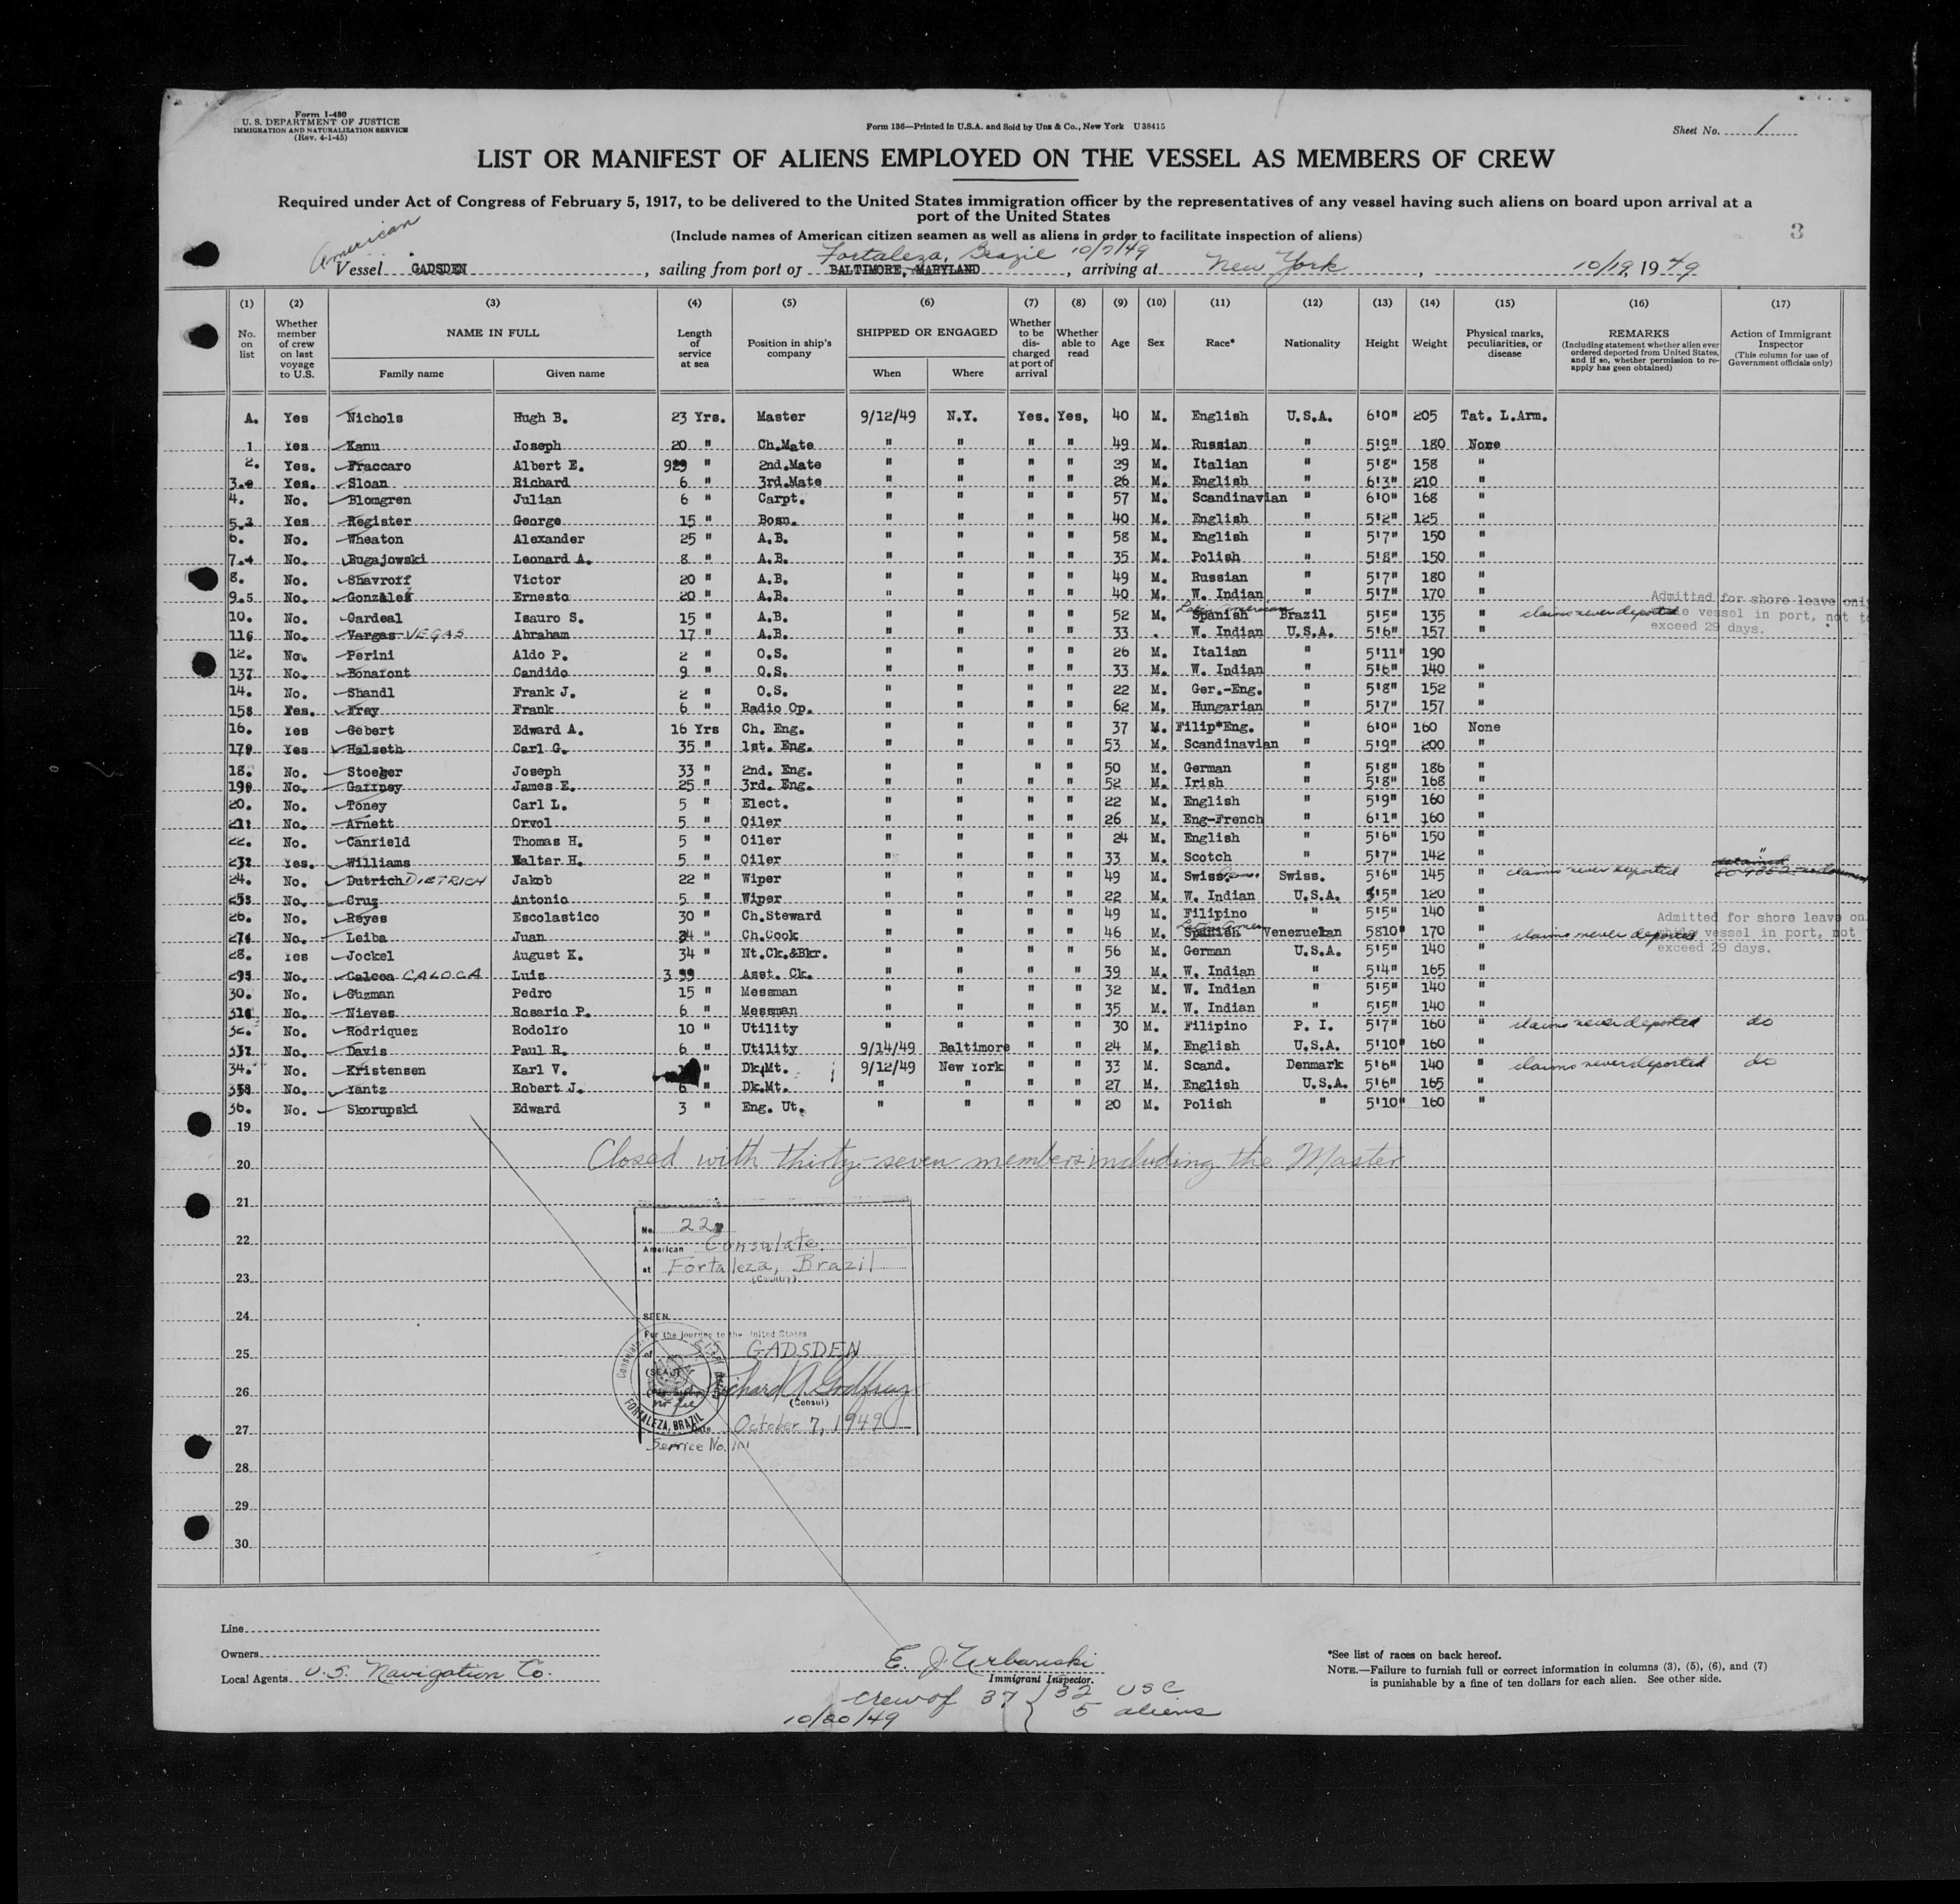 Form I-480
U. S. DEPARTMENT OF JUSTICE
IMMIGRATION AND NATURALIZATION SERVICE
(Rev. 4-1-45)
Form 136—Printed in U.S.A. and Sold by Unz & Co., New York U38415
Sheet No. 1
LIST OR MANIFEST OF ALIENS EMPLOYED ON THE VESSEL AS MEMBERS OF CREW
Required under Act of Congress of February 5, 1917, to be delivered to the United States immigration officer by the representatives of any vessel having such aliens on board upon arrival at a
port of the United States
(Include names of American citizen seamen as well as aliens in order to facilitate inspection of aliens)
3
American
Fortaleza, Brazil 10/7/49
Vessel GADSDEN, sailing from port of BALTIMORE, MARYLAND, arriving at New York, 10/19, 1949
(1) (2) (3) (4) (5) (6) (7) (8) (9) (10) (11) (12) (13) (14) (15) (16) (17)
No. on list
Whether member of crew on last voyage to U.S.
NAME IN FULL
Family name
Given name
Length of service at sea
Position in ship's company
SHIPPED OR ENGAGED
When
Where
Whether to be discharged at port of arrival
Whether able to read
Age
Sex
Race*
Nationality
Height
Weight
Physical marks, peculiarities, or disease
REMARKS
(Including statement whether alien ever ordered deported from United States, and if so, whether permission to re-apply has geen obtained)
Action of Immigrant Inspector
(This column for use of Government officials only)
A. Yes Nichols Hugh B. 23 Yrs. Master 9/12/49 N.Y. Yes. Yes, 40 M. English U.S.A. 6'0" 205 Tat. L.Arm.
1 Yes Kanu Joseph 20 " Ch.Mate " " " " 49 M. Russian " 5'9" 180 None
2. Yes. Fraccaro Albert E. " 2nd.Mate " " " " 29 M. Italian " 5'8" 158 "
3. Yes. Sloan Richard 6 " 3rd.Mate " " " " 26 M. English " 6'3" 210 "
4. No. Blomgren Julian 6 " Carpt. " " " " 57 M. Scandinavian " 6'0" 168 "
5. Yes Register George 15 " Bosn. " " " " 40 M. English " 5'2" 125 "
6. No. Wheaton Alexander 25 " A.B. " " " " 58 M. English " 5'7" 150 "
7. No. Bugajowski Leonard A. 8 " A.B. " " " " 35 M. Polish " 5'8" 150 "
8. No. Shavroff Victor 20 " A.B. " " " " 49 M. Russian " 5'7" 180 "
9. No. Gonzales Ernesto 20 " A.B. " " " " 40 M. W. Indian " 5'7" 170 "
10. No. Gardeal Isauro S. 15 " A.B. " " " " 52 M. Spanish Latin American Brazil 5'5" 135 " claims never deported Admitted for shore leave only while vessel in port, not to exceed 29 days.
11 No. Vargas VEGAS Abraham 17 " A.B. " " " " 33 . W. Indian U.S.A. 5'6" 157 "
12. No. Perini Aldo P. 2 " O.S. " " " " 26 M. Italian " 5'11" 190
13 No. Bonafont Candido 9 " O.S. " " " " 33 M. W. Indian " 5'6" 140 "
14. No. Shandl Frank J. 2 " O.S. " " " " 22 M. Ger.-Eng. " 5'8" 152 "
15 Yes. Frey Frank 6 " Radio Op. " " " " 62 M. Hungarian " 5'7" 157 "
16. Yes Gebert Edward A. 16 Yrs Ch. Eng. " " " " 37 M. Filip*Eng. " 6'0" 160 None
17 Yes Halseth Carl G. 35 " 1st. Eng. " " " " 53 M. Scandinavian " 5'9" 200 "
18. No. Stoeger Joseph 33 " 2nd. Eng. " " " " 50 M. German " 5'8" 186 "
19 No. Gaffney James E. 25 " 3rd. Eng. " " " " 52 M. Irish " 5'8" 168 "
20. No. Toney Carl L. 5 " Elect. " " " " 22 M. English " 5'9" 160 "
21 No. Arnett Orvol 5 " Oiler " " " " 26 M. Eng-French " 6'1" 160 "
22. No. Canfield Thomas H. 5 " Oiler " " " " 24 M. English " 5'6" 150 "
23 Yes. Williams Walter H. 5 " Oiler " " " " 33 M. Scotch " 5'7" 142 "
24. No. Dutrich DIETRICH Jakob 22 " Wiper " " " " 49 M. Swiss. Swiss. 5'6" 145 " claims never deported
25 No. Cruz Antonio 5 " Wiper " " " " 22 M. W. Indian U.S.A. 5'5" 120 "
26. No. Reyes Escolastico 30 " Ch.Steward " " " " 49 M. Filipino " 5'5" 140 "
27 No. Leiba Juan 24 " Ch.Cook " " " " 46 M. Spanish Venezuelan 5810" 170 " claims never deported Admitted for shore leave on while vessel in port, not exceed 29 days.
28. Yes Jockel August K. 34 " Nt.Ck.&Bkr. " " " " 56 M. German U.S.A. 5'5" 140 "
29 No. Calcea CALOCA Luis 3 Asst. Ck. " " " " 39 M. W. Indian " 5'4" 165 "
30. No. Guzman Pedro 15 " Messman " " " " 32 M. W. Indian " 5'5" 140 "
31 No. Nieves Rosario P. 6 " Messman " " " " 35 M. W. Indian " 5'5" 140 "
32. No. Rodriquez Rodolfo 10 " Utility " " " " 30 M. Filipino P. I. 5'7" 160 " claims never deported do
33 No. Davis Paul R. 6 " Utility 9/14/49 Baltimore " " 24 M. English U.S.A. 5'10" 160 "
34. No. Kristensen Karl V. " Dk.Mt. 9/12/49 New York " " 33 M. Scand. Denmark 5'6" 140 " claims never deported do
35 No. Yantz Robert J. 6 " Dk.Mt. " " " " 27 M. English U.S.A. 5'6" 165 "
36. No. Skorupski Edward 3 " Eng. Ut. " " " " 20 M. Polish " 5'10" 160 "
19
Closed with thirty-seven members including the Master
20
21
No. 22
22
American Consulate.
at Fortaleza, Brazil
(Country)
23
24
SEEN
For the journey to the United States
25
S/S GADSDEN
(SEAL)
26
Richard A. Godfrey
(Consul)
no fee
FORTALEZA, BRAZIL
27
Date October 7, 1949
Service No. 101
28
29
30
Line
Owners
Local Agents U.S. Navigation Co.
E. J. Urbanski
Immigrant Inspector.
crew of 37 { 32 USC
5 aliens
10/20/49
*See list of races on back hereof.
NOTE.—Failure to furnish full or correct information in columns (3), (5), (6), and (7)
is punishable by a fine of ten dollars for each alien. See other side.